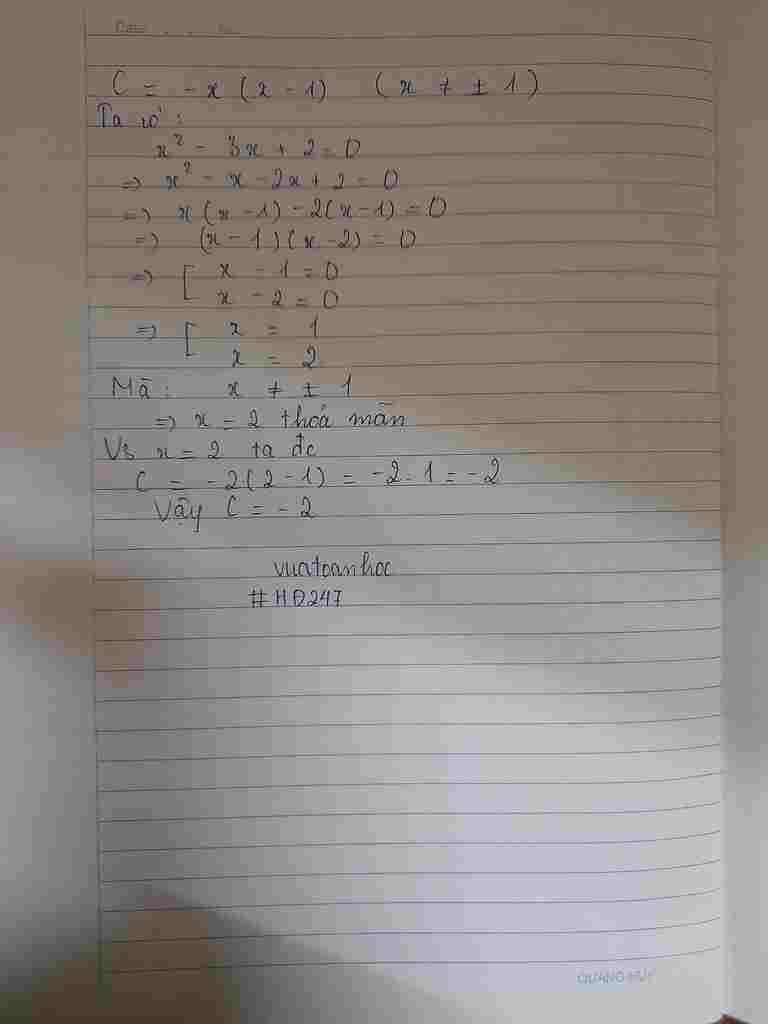 Date . . . No.
C = - x ( x - 1 ) ( x ≠ ± 1 )
Ta có :
x² - 3x + 2 = 0
=> x² - x - 2x + 2 = 0
=> x ( x - 1 ) - 2( x - 1 ) = 0
=> ( x - 1 ) ( x - 2 ) = 0
=> [ x - 1 = 0
x - 2 = 0
=> [ x = 1
x = 2
Mà : x ≠ ± 1
=> x = 2 thoả mãn
Vs x = 2 ta đc
C = - 2 ( 2 - 1 ) = - 2 . 1 = - 2
Vậy C = - 2
vuatoanhoc
#HĐ247
QUANG HUY